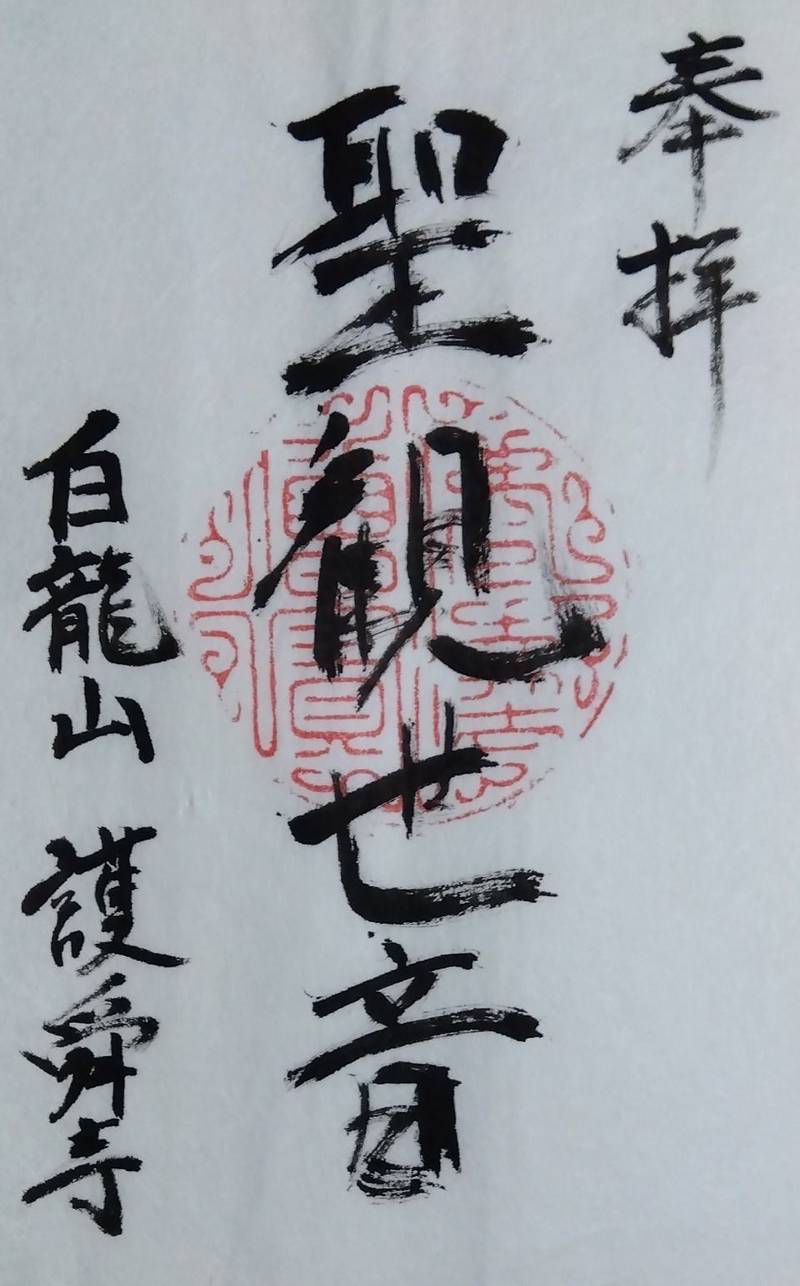 奉拝
聖観世音
白龍山 護舜寺